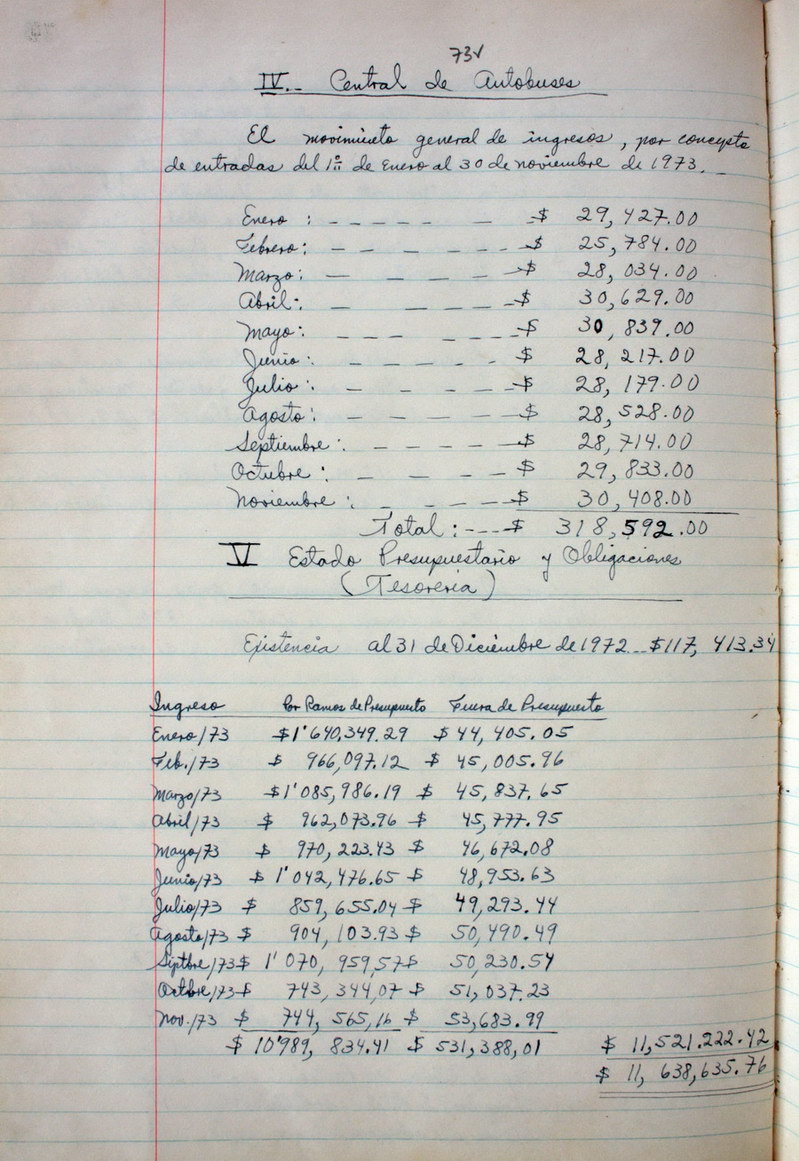 73v
IV.- Central de Autobuses
El movimiento general de ingresos, por concepto
de entradas del 1º de Enero al 30 de noviembre de 1973.-
Enero : - - - - - - $ 29,427.00
Febrero: - - - - - - $ 25,784.00
Marzo: - - - - - $ 28,034.00
Abril: - - - - - $ 30,629.00
Mayo: - - - - - $ 30,839.00
Junio: - - - - $ 28,217.00
Julio: - - - - - $ 28,179.00
Agosto: - - - - - $ 28,528.00
Septiembre: - - - - $ 28,714.00
Octubre : - - - - $ 29,833.00
Noviembre : - - - - $ 30,408.00
Total: --- $ 318,592.00
V Estado Presupuestario y Obligaciones
(Tesorería)
Existencia al 31 de Diciembre de 1972 -- $117,413.34
Ingreso Por Ramos de Presupuesto Fuera de Presupuesto
Enero/73 $1'640,349.29 $44,405.05
Feb./73 $ 966,097.12 $ 45,005.96
Marzo/73 $1'085,986.19 $ 45,837.65
Abril/73 $ 962,073.96 $ 45,777.95
Mayo/73 $ 970,223.43 $ 46,672.08
Junio/73 $ 1'042,476.65 $ 48,953.63
Julio/73 $ 859,655.04 $ 49,293.44
Agosto/73 $ 904,103.93 $ 50,490.49
Septbre/73 $ 1'070,959,57 $ 50,230.54
Octbre/73 $ 743,344,07 $ 51,037.23
Nov./73 $ 744,565,16 $ 53,683.99
$ 10'989,834.41 $ 531,388,01 $ 11,521.222.42
$ 11,638,635.76